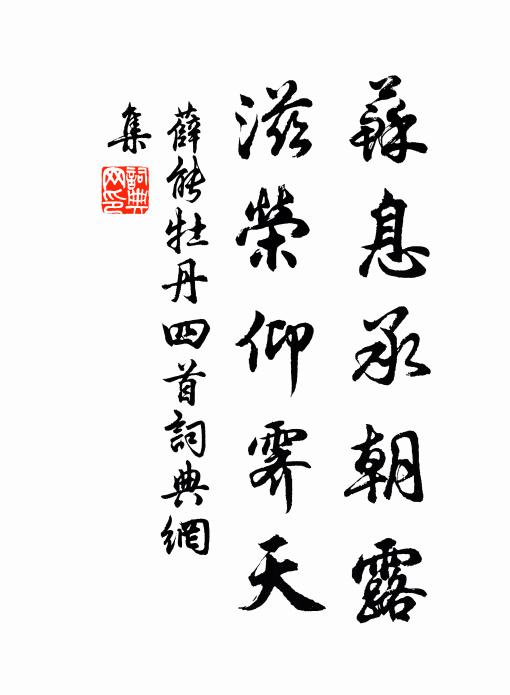 蘇息承朝露
滋榮仰霽天
薛能牡丹四首詞典網
集
詞典網印